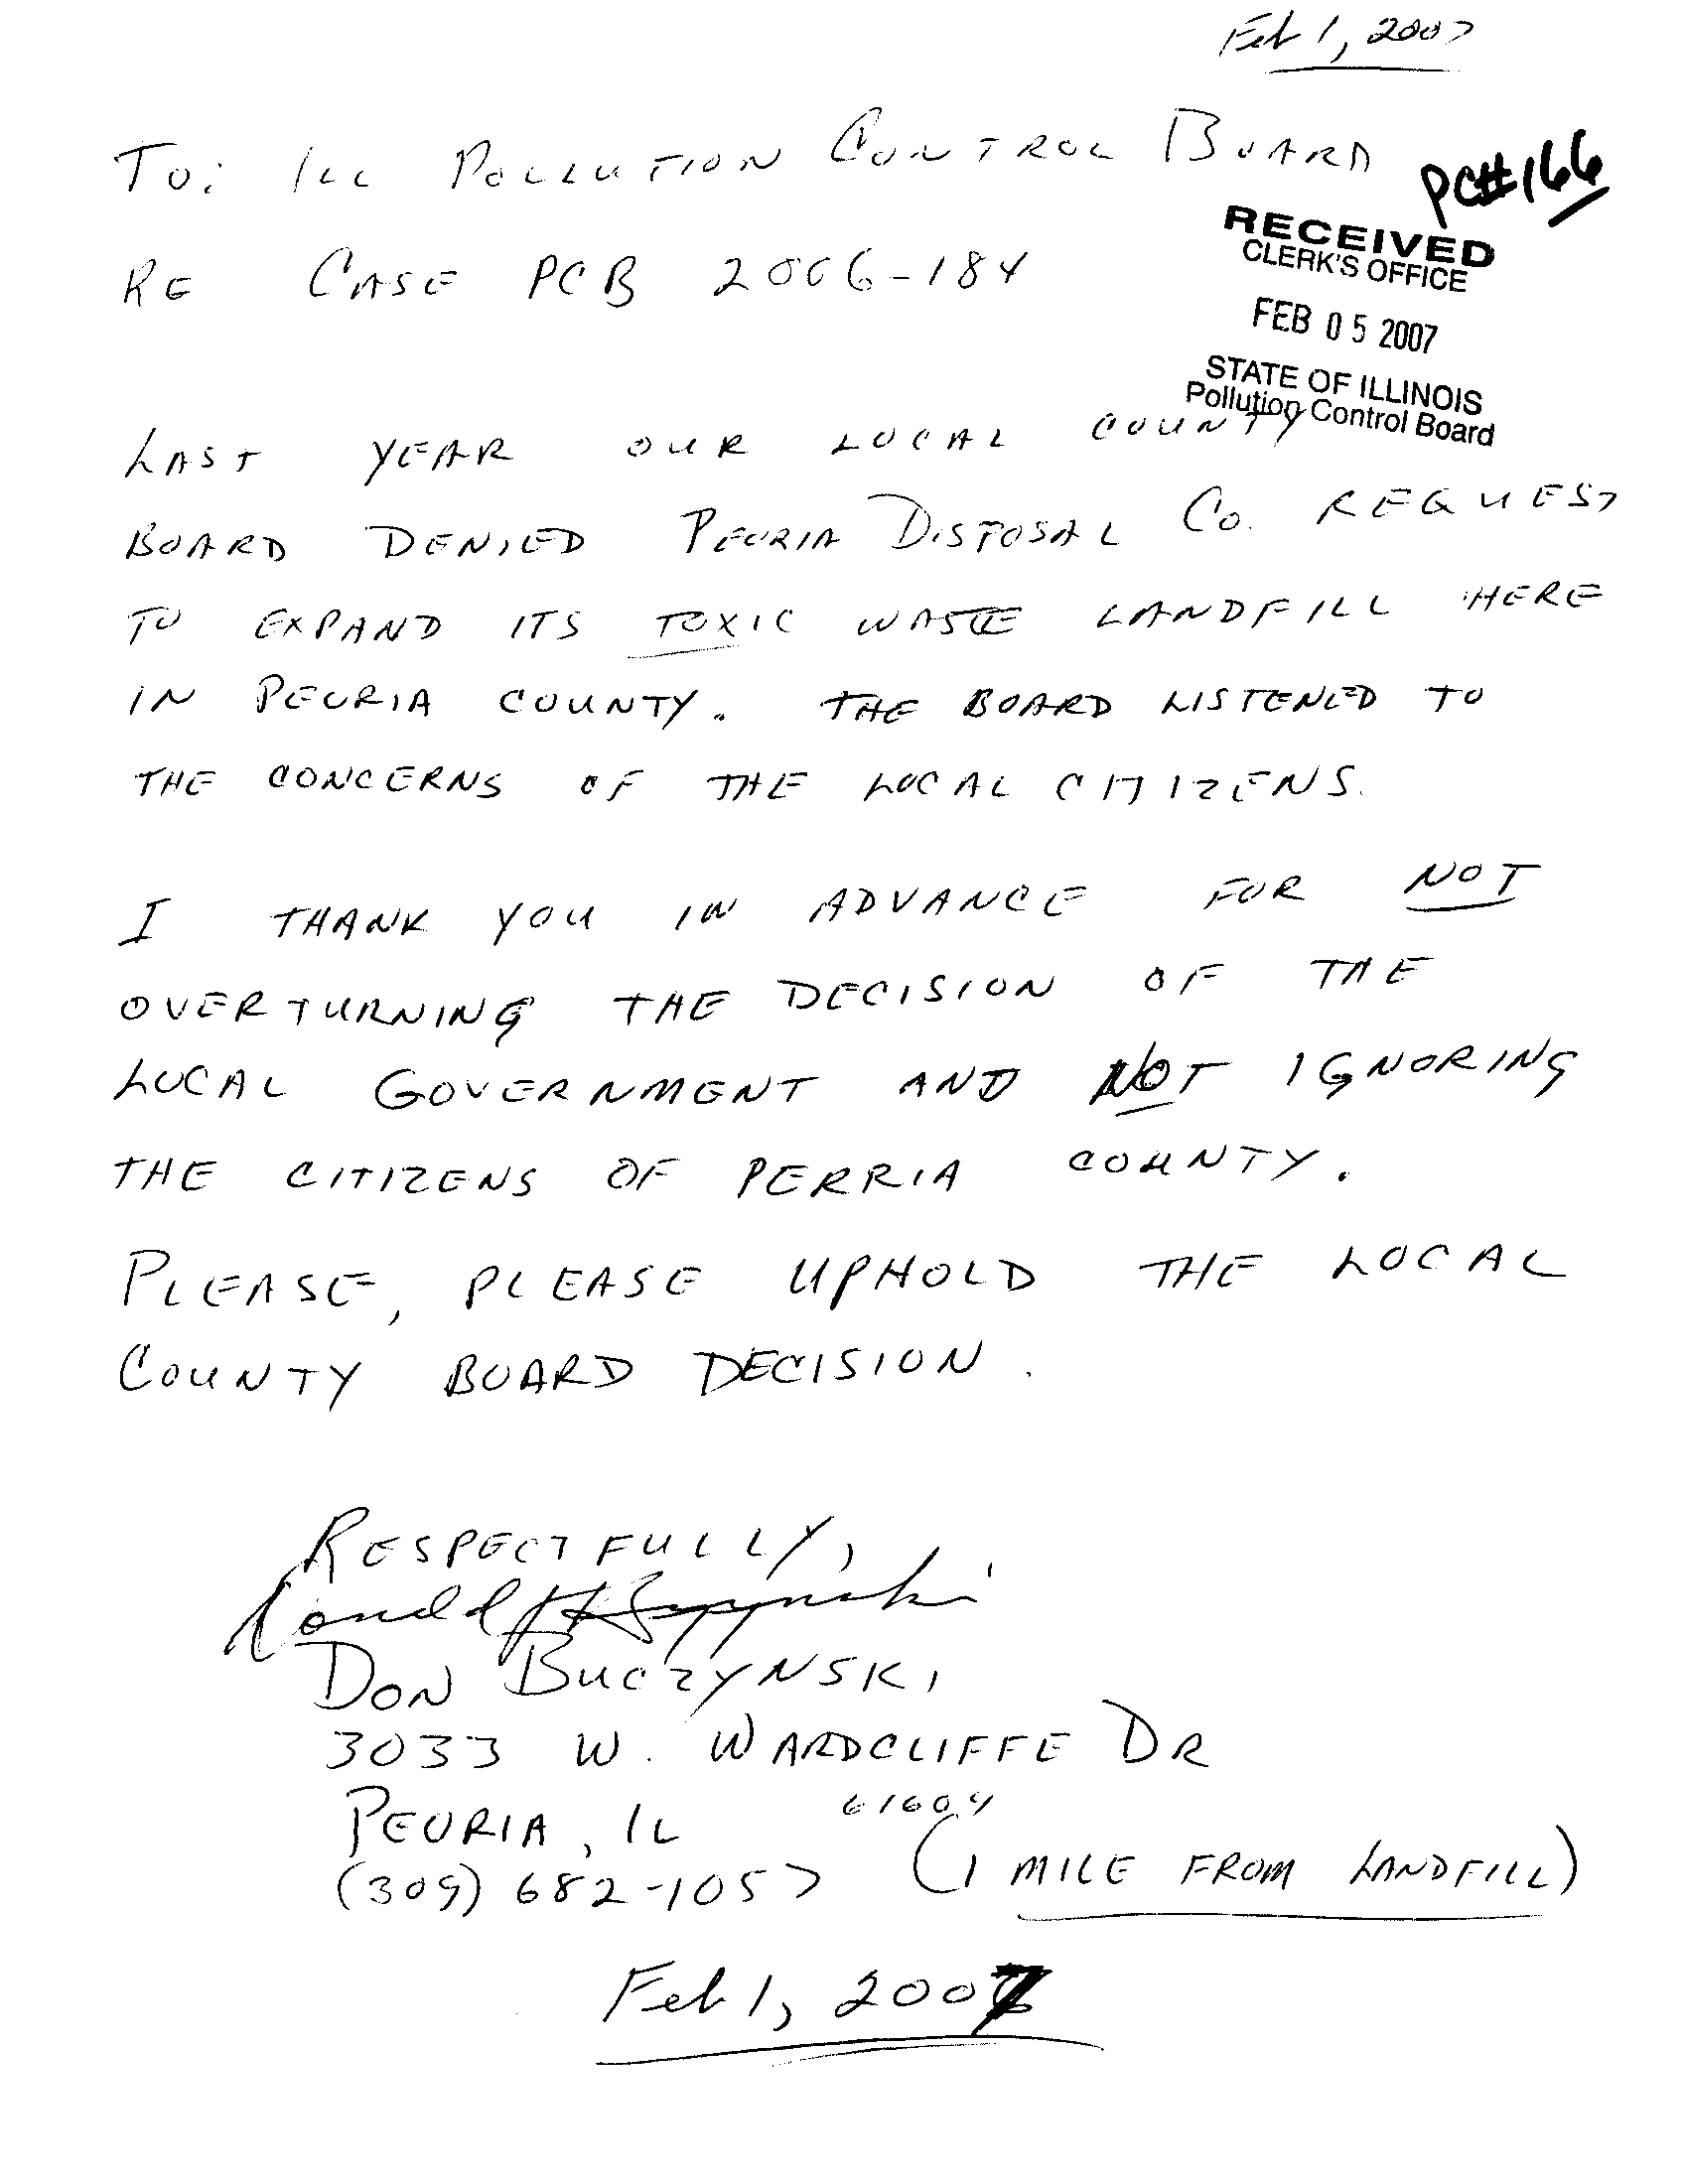 Feb 1, 2007
TO: ILL POLLUTION CONTROL BOARD
PC#166
RECEIVED
CLERK'S OFFICE
RE CASE PCB 2006-184
FEB 05 2007
STATE OF ILLINOIS
Pollution Control Board
LAST YEAR OUR LOCAL COUNTY
BOARD DENIED PEORIA DISPOSAL CO. REQUEST
TO EXPAND ITS TOXIC WASTE LANDFILL HERE
IN PEORIA COUNTY. THE BOARD LISTENED TO
THE CONCERNS OF THE LOCAL CITIZENS.
I THANK YOU IN ADVANCE FOR NOT
OVERTURNING THE DECISION OF THE
LOCAL GOVERNMENT AND NOT IGNORING
THE CITIZENS OF PERRIA COUNTY.
PLEASE, PLEASE UPHOLD THE LOCAL
COUNTY BOARD DECISION.
RESPECTFULLY,
DON BUCZYNSKI
3033 W. WARDCLIFFE DR
PEORIA, IL 61604
(309) 682-1057 (1 MILE FROM LANDFILL)
Feb 1, 2007